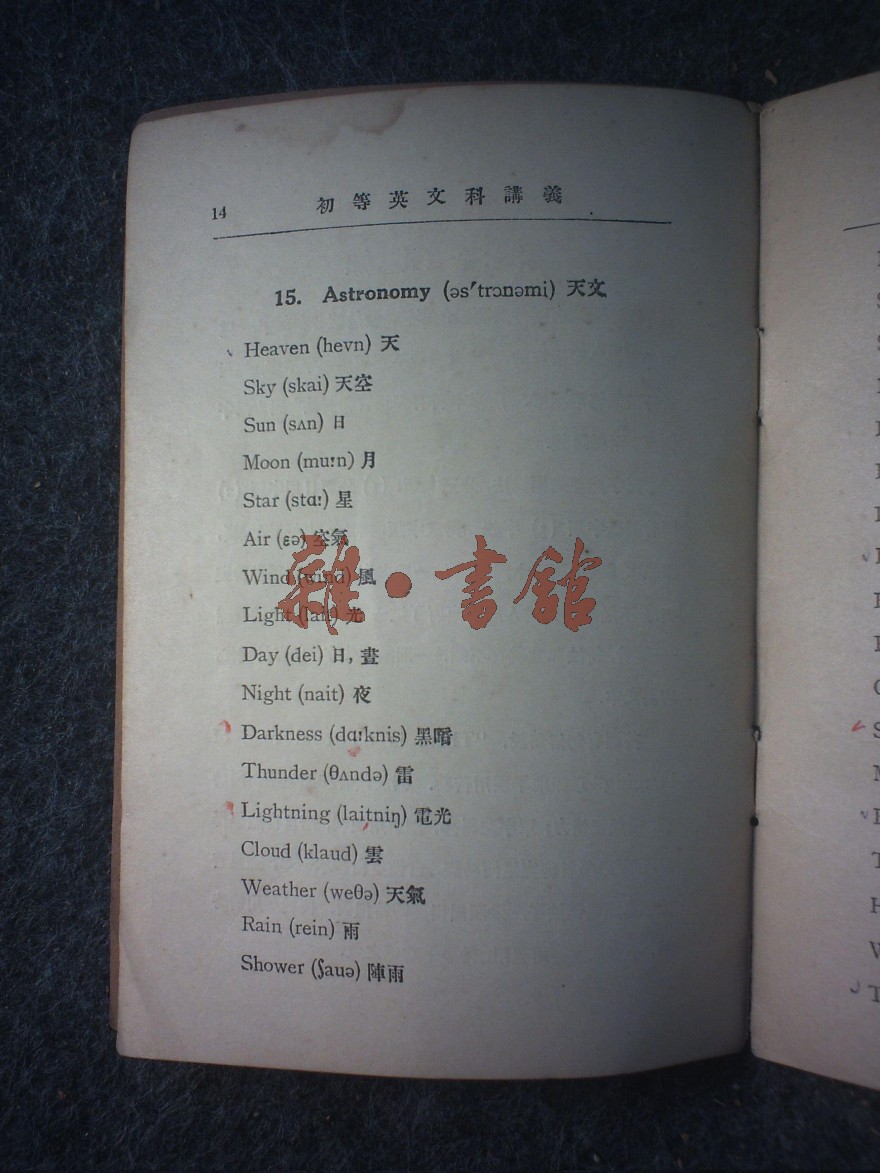 14
初等英文科講義
15. Astronomy (əs′trɔnəmi) 天文
Heaven (hevn) 天
Sky (skai) 天空
Sun (sʌn) 日
Moon (muːn) 月
Star (stɑː) 星
Air (ɛə) 空氣
Wind (wind) 風
Light (lait) 光
Day (dei) 日, 晝
Night (nait) 夜
Darkness (dɑːknis) 黑暗
Thunder (θʌndə) 雷
Lightning (laitniŋ) 電光
Cloud (klaud) 雲
Weather (weθə) 天氣
Rain (rein) 雨
Shower (ʃauə) 陣雨
雜·書館